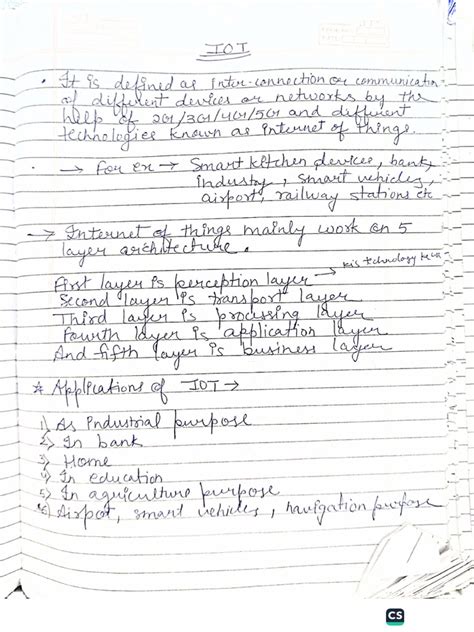 IOT
• It is defined as Inter-connection or communication
of different devices or networks by the
help of 2G/3G/4G/5G and different
technologies known as Internet of things.
→ For ex → Smart kitchen devices, bank,
industry, smart vehicles,
airport, railway stations etc
→ Internet of things mainly work on 5
layer architecture.
First layer is perception layer → technology
Second layer is transport layer
Third layer is processing layer
Fourth layer is application layer
And fifth layer is business layer
* Applications of IOT →
1) As Industrial purpose
2) In bank
3) Home
4) In education
5) In agriculture purpose
6) Airpot, smart vehicles, navigation purpose
CS